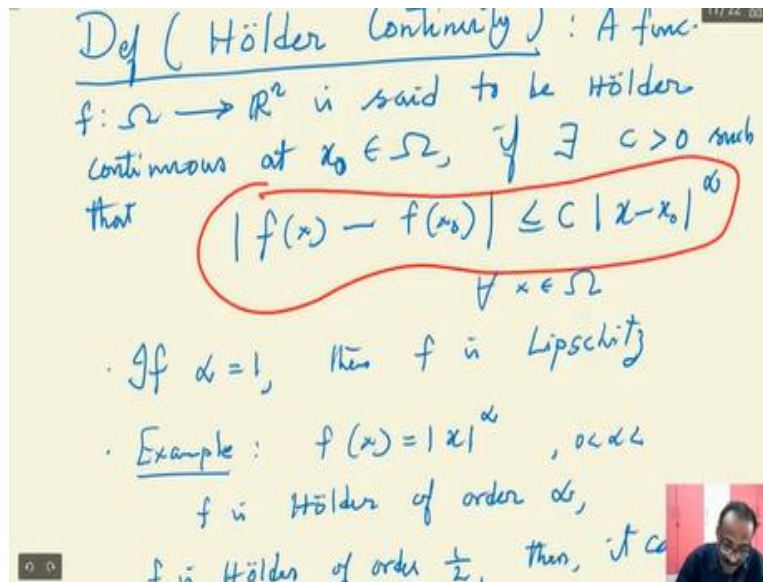 Def ( Hölder Continuity ) : A func.
f : Ω → ℝ² is said to be Hölder
continuous at x₀ ∈ Ω, if ∃ C > 0 such
that
| f(x) − f(x₀) | ≤ C | x − x₀ |^α
∀ x ∈ Ω
· If α = 1, then f is Lipschitz
· Example : f (x) = | x |^α , 0 < α <
f is Hölder of order α,
f is Hölder of order 1/2, then, it ca